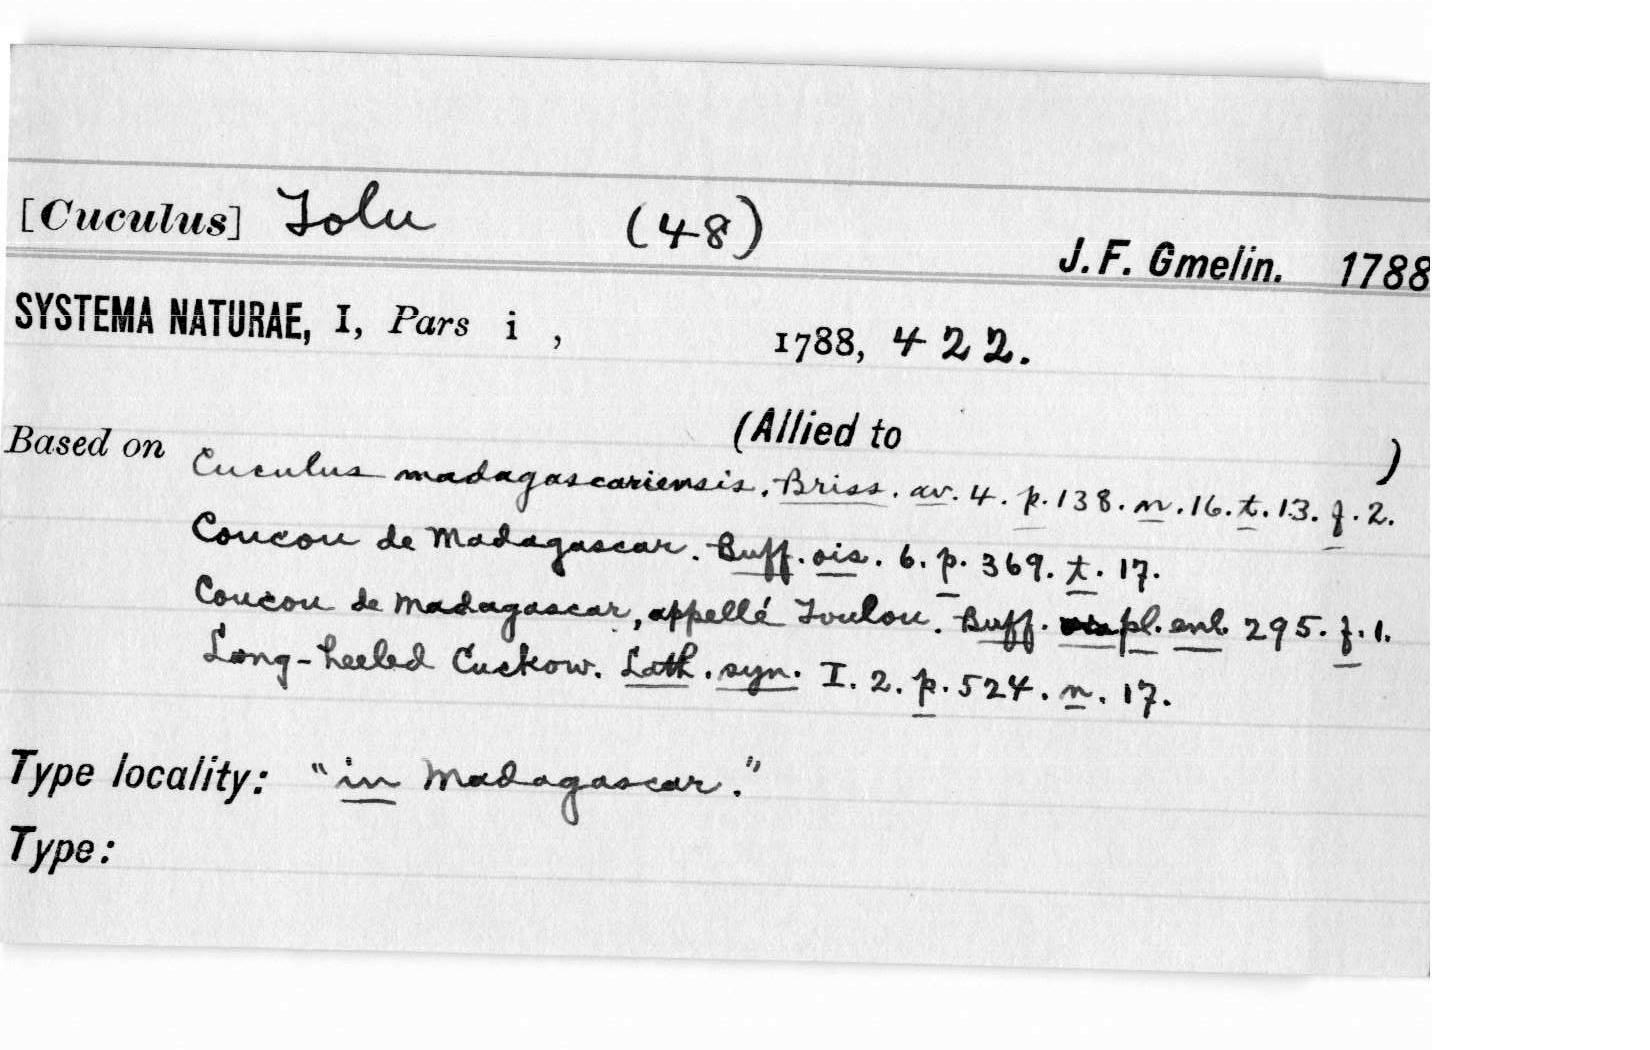 [Cuculus] Tolu (48)
J. F. Gmelin. 1788
SYSTEMA NATURAE, I, Pars i , 1788, 422.
(Allied to )
Based on Cuculus madagascariensis. Briss. av. 4. p. 138. n. 16. t. 13. f. 2.
Coucou de Madagascar. Buff. ois. 6. p. 369. t. 17.
Coucou de Madagascar, appellé Toulou. Buff. pl. enl. 295. f. 1.
Long-heeled Cuckow. Lath. syn. I. 2. p. 524. n. 17.
Type locality: "in Madagascar."
Type: